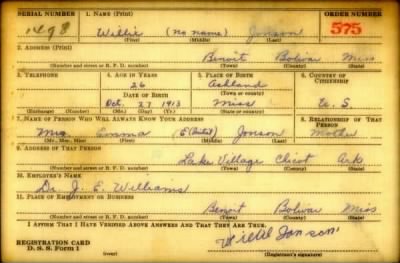 SERIAL NUMBER 1. NAME (Print) ORDER NUMBER
1498 Willie (no name) Jonson 575
(First) (Middle) (Last)
2. ADDRESS (Print)
Benoit Bolivar Miss
(Number and street or R. F. D. number) (Town) (County) (State)
3. TELEPHONE 4. AGE IN YEARS 5. PLACE OF BIRTH 6. COUNTRY OF CITIZENSHIP
26 Ashland
DATE OF BIRTH (Town or county)
Oct. 27 1913 Miss U. S.
(Exchange) (Number) (Mo.) (Day) (Yr.) (State or country)
7. NAME OF PERSON WHO WILL ALWAYS KNOW YOUR ADDRESS 8. RELATIONSHIP OF THAT PERSON
Mrs Emma E (Initial) Jonson Mother
(Mr., Mrs., Miss) (First) (Middle) (Last)
9. ADDRESS OF THAT PERSON
Lake Village Chicot Ark
(Number and street or R. F. D. number) (Town) (County) (State)
10. EMPLOYER'S NAME
Dr. J. E. Williams
11. PLACE OF EMPLOYMENT OR BUSINESS
Benoit Bolivar Miss
(Number and street or R. F. D. number) (Town) (County) (State)
I AFFIRM THAT I HAVE VERIFIED ABOVE ANSWERS AND THAT THEY ARE TRUE.
REGISTRATION CARD
D. S. S. Form 1 (over) (Registrant's signature)